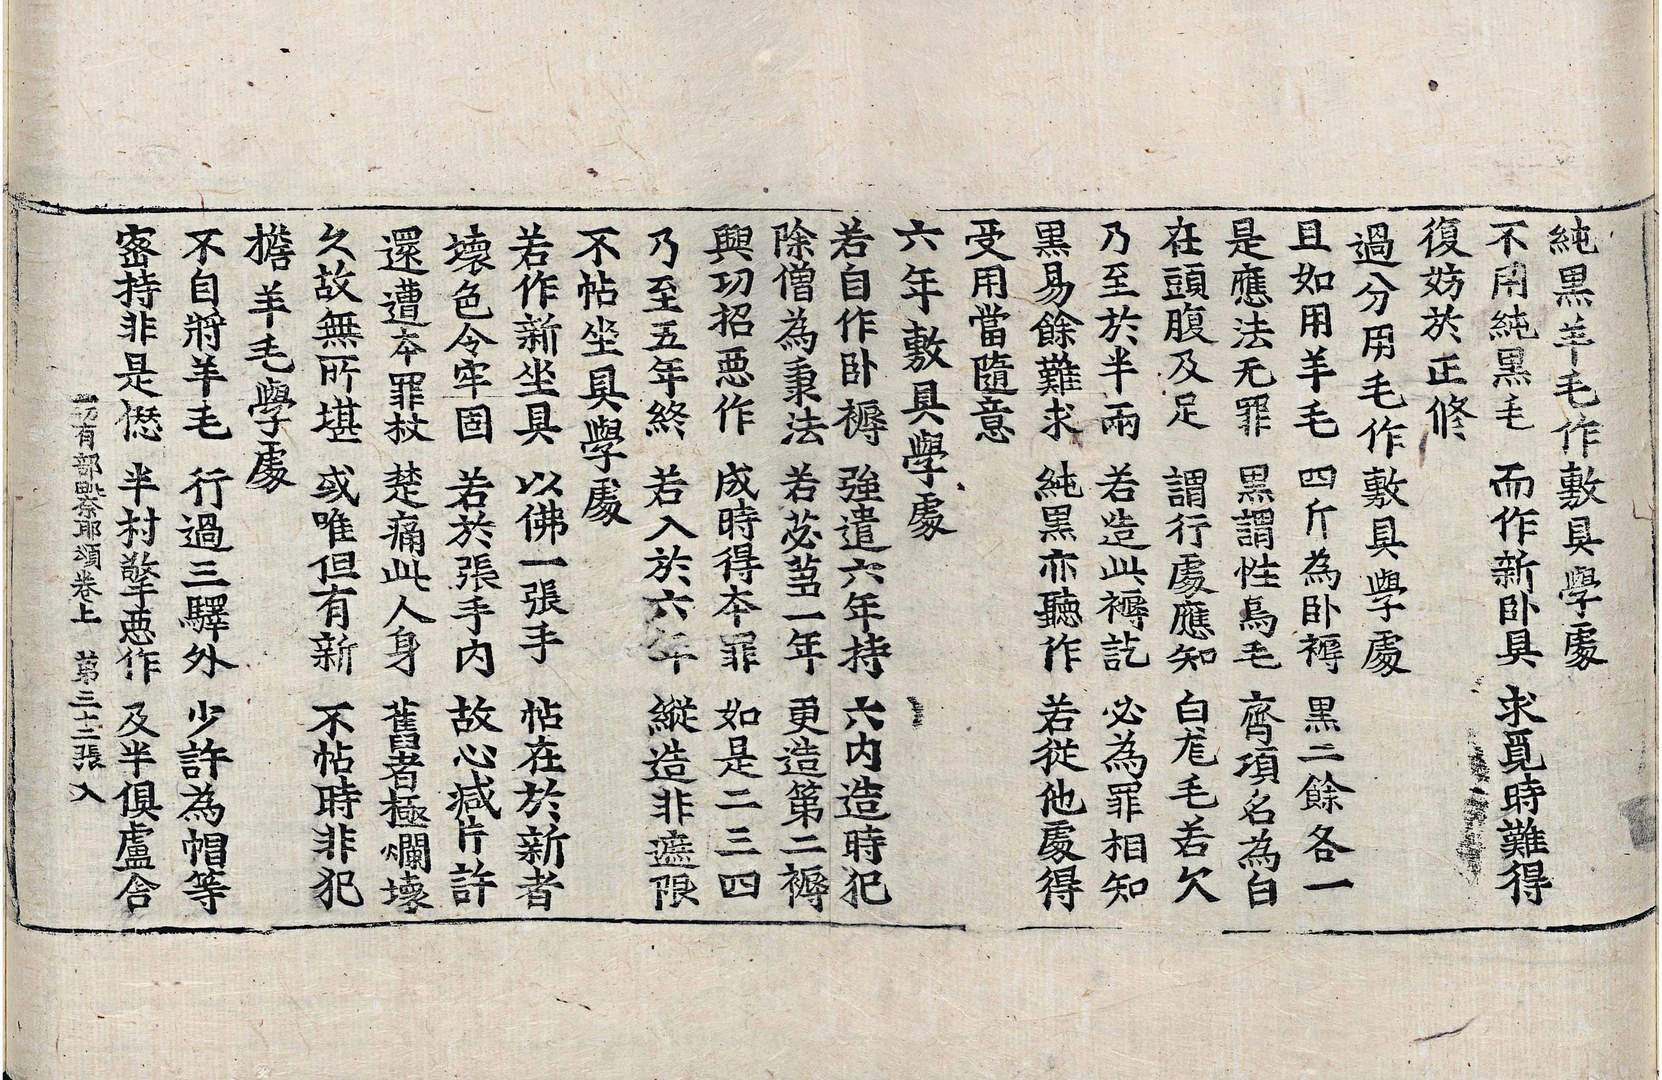 純黒羊毛作敷具學處
不用純黒毛　而作新卧具　求覓時難得
復妨於正修
過分用毛作敷具學處
且如用羊毛　四斤為卧褥　黒二餘各一
是應法无罪　黒謂性烏毛　齊項名為白
在頭腹及足　謂行處應知　白尨毛若欠
乃至於半兩　若造此褥訖　必為罪相知
黒易餘難求　純黒亦聽作　若從他處得
受用當隨意
六年敷具學處
若自作卧褥　強遣六年持　六内造時犯
除僧為秉法　若苾芻一年　更造第二褥
興功招惡作　成時得本罪　如是二三四
乃至五年終　若入於六年　縱造非遮限
不帖坐具學處
若作新坐具　以佛一張手　帖在於新者
壞色令牢固　若於張手内　故心減片許
還遭本罪杖　楚痛此人身　舊者極爛壞
久故無所堪　或唯但有新　不帖時非犯
擔羊毛學處
不自將羊毛　行過三驛外　少許為帽等
密持非是𠎝　半村擎惡作　及半俱盧舍
一切有部毗奈耶頌卷上　第三十三張　入